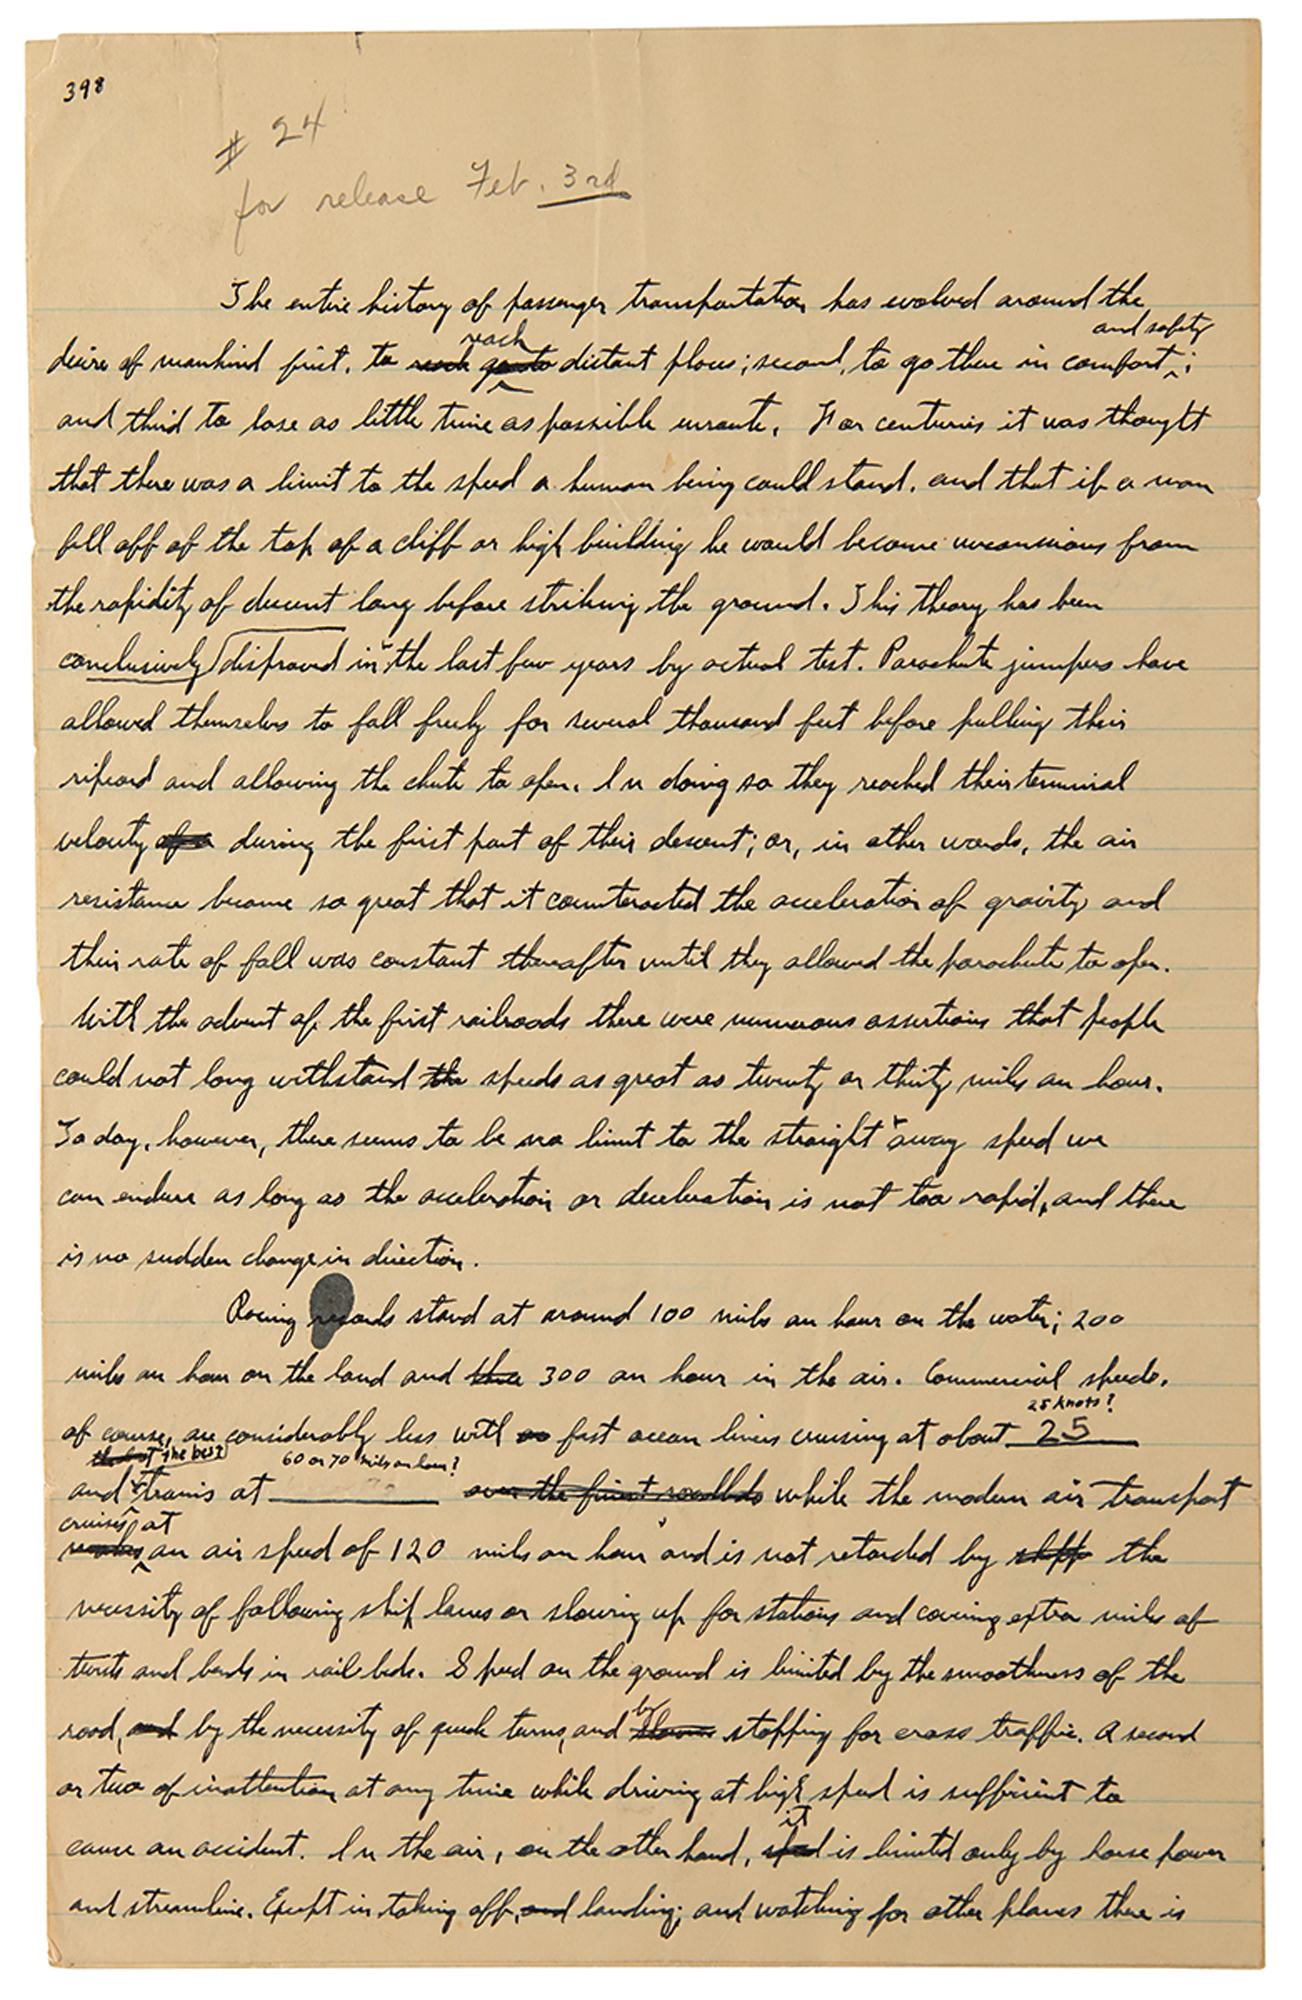 398
# 24
for release Feb. 3rd
The entire history of passenger transportation has evolved around the
and safety
reach
desire of mankind first, to reach go to distant places; second, to go there in comfort;
and third to lose as little time as possible enroute. For centuries it was thought
that there was a limit to the speed a human being could stand, and that if a man
fell off of the top of a cliff or high building he would become unconscious from
the rapidity of descent long before striking the ground. This theory has been
conclusively disproved in the last few years by actual test. Parachute jumpers have
allowed themselves to fall freely for several thousand feet before pulling their
ripcord and allowing the chute to open. In doing so they reached their terminal
velocity during the first part of their descent; or, in other words, the air
resistance became so great that it counteracted the acceleration of gravity and
their rate of fall was constant thereafter until they allowed the parachute to open.
With the advent of the first railroads there were numerous assertions that people
could not long withstand the speeds as great as twenty or thirty miles an hour.
Today, however, there seems to be no limit to the straight away speed we
can endure as long as the acceleration or deceleration is not too rapid, and there
is no sudden change in direction.
Racing records stand at around 100 miles an hour on the water; 200
miles an hour on the land and 300 an hour in the air. Commercial speeds,
25 knots?
of course, are considerably less with fast ocean liners cruising at about 25
the best 60 or 70 miles an hour?
and trains at over the finest roadbeds while the modern air transport
cruises at
an air speed of 120 miles an hour and is not retarded by the
necessity of following ship lanes or slowing up for stations and covering extra miles of
twists and bends in rail beds. Speed on the ground is limited by the smoothness of the
by
road, and by the necessity of quick turns, and stopping for cross traffic. A second
or two of inattention at any time while driving at high speed is sufficient to
it
cause an accident. In the air, on the other hand, speed is limited only by horse power
and streamline. Except in taking off, and landing; and watching for other planes there is